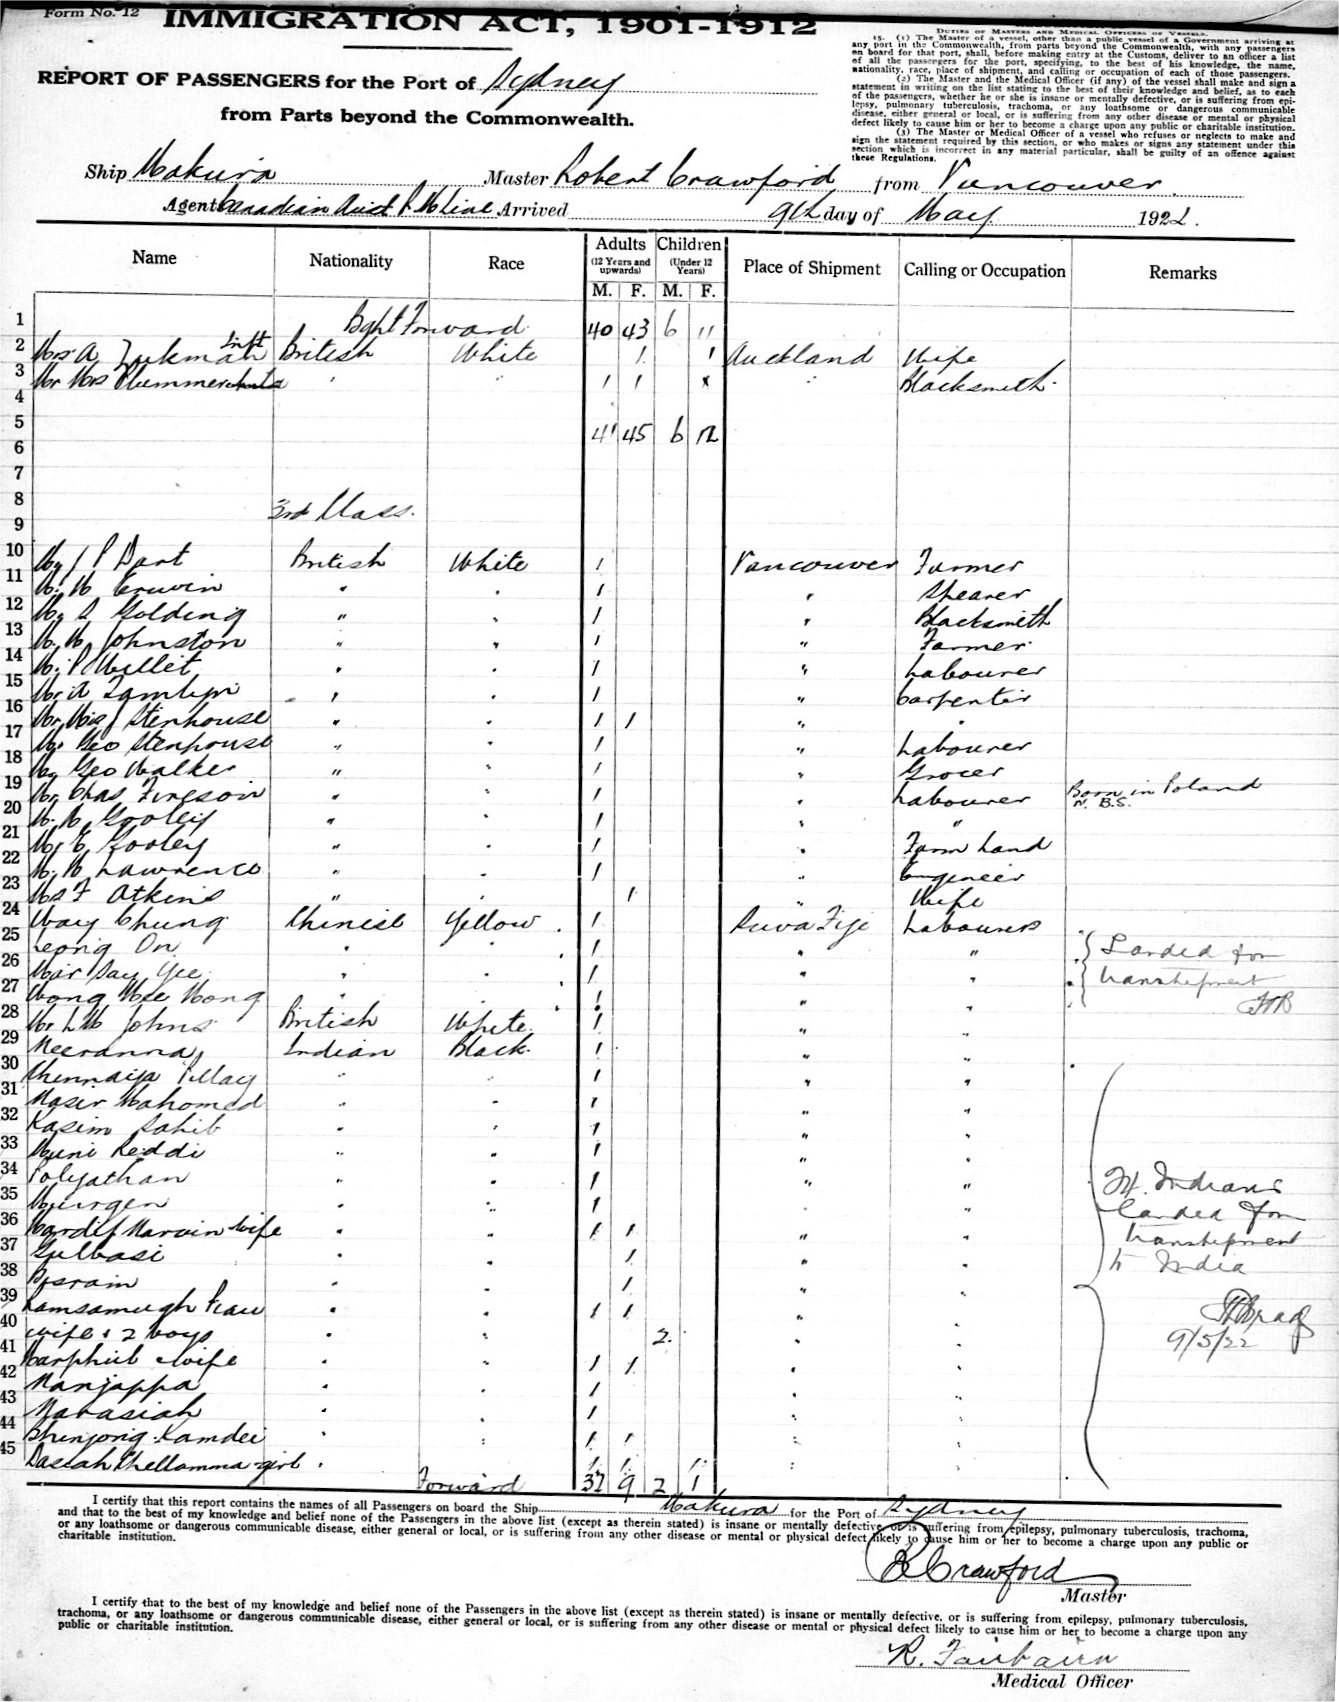 Form No. 12
IMMIGRATION ACT, 1901-1912
REPORT OF PASSENGERS for the Port of Sydney
from Parts beyond the Commonwealth.
DUTIES OF MASTERS AND MEDICAL OFFICERS OF VESSELS.
15. (1) The Master of a vessel, other than a public vessel of a Government arriving at
any port in the Commonwealth, from parts beyond the Commonwealth, with any passengers
on board for that port, shall, before making entry at the Customs, deliver to an officer a list
of all the passengers for the port, specifying, to the best of his knowledge, the name,
nationality, race, place of shipment, and calling or occupation of each of those passengers.
(2) The Master and the Medical Officer (if any) of the vessel shall make and sign a
statement in writing on the list stating to the best of their knowledge and belief, as to each
of the passengers, whether he or she is insane or mentally defective, or is suffering from epi-
lepsy, pulmonary tuberculosis, trachoma, or any loathsome or dangerous communicable
disease, either general or local, or is suffering from any other disease or mental or physical
defect likely to cause him or her to become a charge upon any public or charitable institution.
(3) The Master or Medical Officer of a vessel who refuses or neglects to make and
sign the statement required by this section, or who makes or signs any statement under this
section which is incorrect in any material particular, shall be guilty of an offence against
these Regulations.
Ship Makura Master Robert Crawford from Vancouver
Agent Canadian Aust R M Line Arrived 9th day of May 1922.
Name Nationality Race Adults (12 Years and upwards) M. F. Children (Under 12 Years) M. F. Place of Shipment Calling or Occupation Remarks
1 Bght Forward 40 43 6 11
2 Mrs A Inft British White 1 1 Auckland Wife
3 Mr Mrs Plummer " " 1 1 " Blacksmith
4
5 41 45 6 12
6
7
8 3rd Class.
9
10 Mr J P Dart British White 1 Vancouver Farmer
11 Mr W Erwin " " 1 " Shearer
12 Mr S Golding " " 1 " Blacksmith
13 Mr W Johnston " " 1 " Farmer
14 Mr P Millet " " 1 " Labourer
15 Mr A Tamlyn " " 1 " Carpenter
16 Mr Mrs J Stenhouse " " 1 1 " "
17 Mr Geo Stenhouse " " 1 " Labourer
18 Mr Geo Walker " " 1 " Grocer
19 Mr Chas Fingson " " 1 " Labourer Born in Poland N. B.S.
20 Mr W Gooley " " 1 " "
21 Mr E Gooley " " 1 " Farm hand
22 Mr W Lawrence " " 1 " Engineer
23 Mrs F Atkins " " 1 " Wife
24 Way Chung Chinese Yellow 1 Suva Fiji Labourers
25 Leong On " " 1 " " Landed for
26 Mar Say Yee " " 1 " " transhipment
27 Wong Mee Mong " " 1 " " FHB
28 Mr L W Johns British White 1 " "
29 Neeranna Indian Black 1 " "
30 Chennaiya Pillay " " 1 " "
31 Nasir Mahomed " " 1 " "
32 Kasim Sahib " " 1 " "
33 Muni Reddi " " 1 " "
34 Polyathan " " 1 " " Indians
35 Murgen " " 1 " " landed for
36 Hardit Narain wife " " 1 1 " " transhipment
37 Gulbasi " " 1 " " to India
38 Bisram " " 1 " "
39 Ramsamugh " " 1 1 " "
40 wife & 2 boys " " 2 " " 9/5/22
41 Harphul wife " " 1 1 " "
42 Nanjappa " " 1 " "
43 Narasiah " " 1 " "
44 Bhenjong Kamdei " " 1 1 " "
45 Dasiah Chellamma girl " 1 1 1 " "
Forward 37 9 2 1
I certify that this report contains the names of all Passengers on board the Ship Makura for the Port of Sydney
and that to the best of my knowledge and belief none of the Passengers in the above list (except as therein stated) is insane or mentally defective, or is suffering from epilepsy, pulmonary tuberculosis, trachoma,
or any loathsome or dangerous communicable disease, either general or local, or is suffering from any other disease or mental or physical defect likely to cause him or her to become a charge upon any public or
charitable institution.
R Crawford
Master
I certify that to the best of my knowledge and belief none of the Passengers in the above list (except as therein stated) is insane or mentally defective, or is suffering from epilepsy, pulmonary tuberculosis,
trachoma, or any loathsome or dangerous communicable disease, either general or local, or is suffering from any other disease or mental or physical defect likely to cause him or her to become a charge upon any
public or charitable institution.
R. Fairbairn
Medical Officer